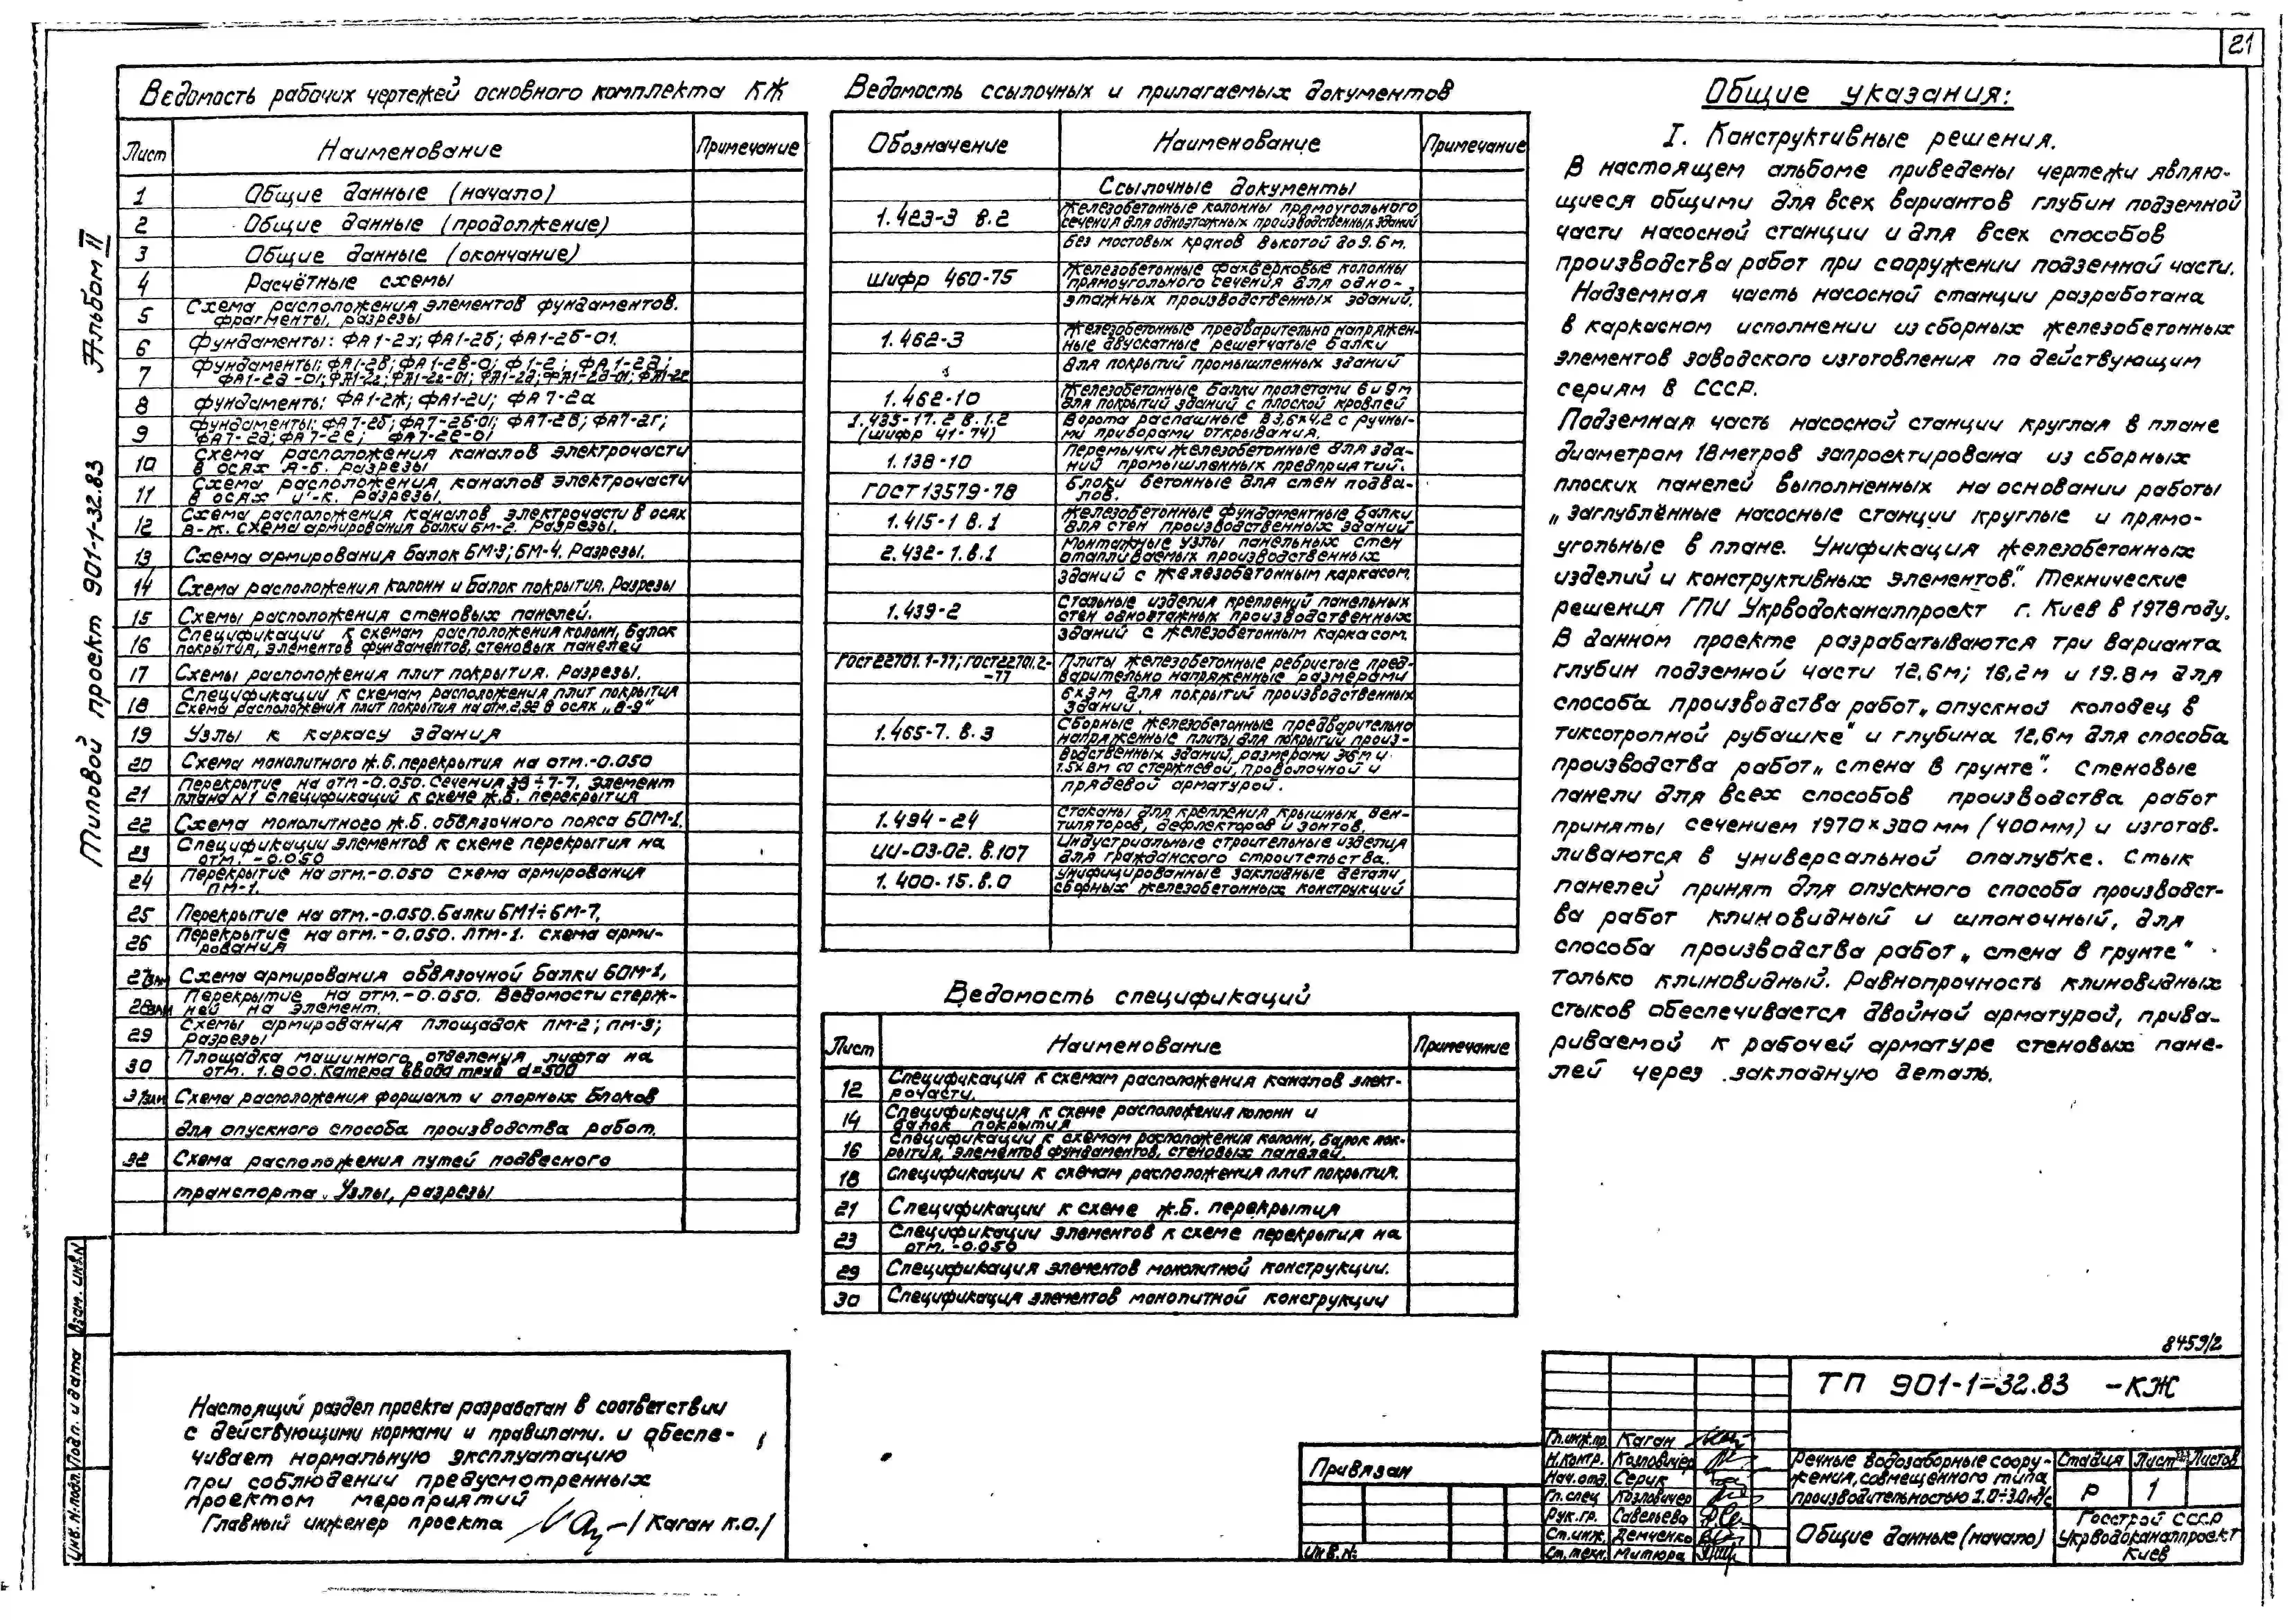 21
Альбом II
Типовой проект 901-1-32.83
Ведомость рабочих чертежей основного комплекта КЖ
Лист Наименование Примечание
1 Общие данные (начало)
2 Общие данные (продолжение)
3 Общие данные (окончание)
4 Расчётные схемы
5 Схема расположения элементов фундаментов.
фрагменты, разрезы
6 Фундаменты: ФА1-2а; ФА1-2б; ФА1-2б-01.
7 Фундаменты: ФА1-2в; ФА1-2в-0; Ф1-2; ФА1-2д;
8 Фундаменты: ФА1-2ж; ФА1-2и; ФА7-2а
9 Фундаменты: ФА7-2б; ФА7-2б-01; ФА7-2в; ФА7-2г;
ФА7-2д; ФА7-2е; ФА7-2е-01
10 Схема расположения каналов электрочасти
в осях А-Б. Разрезы
11 Схема расположения каналов электрочасти
в осях И-К. Разрезы.
12 Схема расположения каналов электрочасти в осях
В-Ж. Схема армирования балки БМ-2. Разрезы.
13 Схема армирования балок БМ-3; БМ-4. Разрезы.
14 Схема расположения колонн и балок покрытия. Разрезы
15 Схемы расположения стеновых панелей.
16 Спецификации к схемам расположения колонн, балок
покрытия, элементов фундаментов, стеновых панелей
17 Схемы расположения плит покрытия. Разрезы.
18 Спецификации к схемам расположения плит покрытия
Схема расположения плит покрытия на отм. 2,92 в осях „8-9“
19 Узлы к каркасу здания
20 Схема монолитного ж.б. перекрытия на отм.-0.050
21 Перекрытие на отм-0.050. Сечения ÷ 7-7, Элемент
плана N1 Спецификаций к схеме ж.б. перекрытия
22 Схема монолитного ж.б. обвязочного пояса БОМ-1.
23 Спецификации элементов к схеме перекрытия на
отм. -0.050
24 Перекрытие на отм.-0.050 Схема армирования
ПМ-1.
25 Перекрытие на отм.-0.050. Балки БМ1÷БМ-7.
26 Перекрытие на отм.-0.050. ЛТМ-1. Схема арми-
рования
27зам Схема армирования обвязочной балки БОМ-1,
28зам Перекрытие на отм.-0.050. Ведомости стерж-
ней на элемент.
29 Схемы армирования площадок ПМ-2; ПМ-3;
Разрезы
30 Площадка машинного отделения лифта на
отм. 1.800. Камера ввода труб d=500
31зам Схема расположения форшахт и опорных блоков
для опускного способа производства работ.
32 Схема расположения путей подвесного
транспорта. Узлы, разрезы
Ведомость ссылочных и прилагаемых документов
Обозначение Наименование Примечание
Ссылочные документы
1.423-3 в.2 Железобетонные колонны прямоугольного
сечения для одноэтажных производственных зданий
без мостовых кранов высотой до 9.6м.
Шифр 460-75 Железобетонные фахверковые колонны
прямоугольного сечения для одно-
этажных производственных зданий.
1.462-3 Железобетонные предварительно напряжен-
ные двускатные решетчатые балки
для покрытий промышленных зданий
1.462-10 Железобетонные балки пролетами 6 и 9м
для покрытий зданий с плоской кровлей
1.435-17. в.1.2 Ворота распашные в 3,6х4,2 с ручны-
(шифр 41-74) ми приборами открывания.
1.138-10 Перемычки железобетонные для зда-
ний промышленных предприятий.
ГОСТ 13579-78 Блоки бетонные для стен подва-
лов.
1.415-1 в.1 Железобетонные фундаментные балки
для стен производственных зданий
2.432-1.в.1 Монтажные узлы панельных стен
отапливаемых производственных
зданий с железобетонным каркасом.
1.439-2 Стальные изделия креплений панельных
стен одноэтажных производственных
зданий с железобетонным каркасом.
ГОСТ 22701.1-77; ГОСТ 22701.2- Плиты железобетонные ребристые пред-
-77 варительно напряженные размерами
6х3м для покрытий производственных
зданий
1.465-7. в.3 Сборные железобетонные предварительно
напряженные плиты для покрытий произ-
водственных зданий, размерами 3х6м и
1.5х6м со стержневой, проволочной и
прядевой арматурой.
1.494-24 Стаканы для крепления крышных вен-
тиляторов, дефлекторов и зонтов.
ИИ-03-02. в.107 Индустриальные строительные изделия
для гражданского строительства.
1.400-15.в.0 Унифицированные закладные детали
сборных железобетонных конструкций
Ведомость спецификаций
Лист Наименование Примечание
12 Спецификация к схемам расположения каналов элект-
рочасти.
14 Спецификация к схеме расположения колонн и
балок покрытия
16 Спецификации к схемам расположения колонн, балок пок-
рытия, элементов фундаментов, стеновых панелей.
18 Спецификации к схемам расположения плит покрытия.
21 Спецификации к схеме ж.б. перекрытия
23 Спецификации элементов к схеме перекрытия на
отм. -0.050
29 Спецификация элементов монолитной конструкции.
30 Спецификация элементов монолитной конструкции
Общие указания:
I. Конструктивные решения.
В настоящем альбоме приведены чертежи являю-
щиеся общими для всех вариантов глубин подземной
части насосной станции и для всех способов
производства работ при сооружении подземной части.
Надземная часть насосной станции разработана
в каркасном исполнении из сборных железобетонных
элементов заводского изготовления по действующим
сериям в СССР.
Подземная часть насосной станции круглая в плане
диаметром 18метров запроектирована из сборных
плоских панелей выполненных на основании работы
„Заглублённые насосные станции круглые и прямо-
угольные в плане. Унификация железобетонных
изделий и конструктивных элементов“. Технические
решения ГПИ Укрводоканалпроект г. Киев в 1978году.
В данном проекте разрабатываются три варианта
глубин подземной части 12,6м; 16,2м и 19.8м для
способа производства работ „опускной колодец в
тиксотропной рубашке“ и глубина 12,6м для способа
производства работ „стена в грунте“. Стеновые
панели для всех способов производства работ
приняты сечением 1970×300мм (400мм) и изготав-
ливаются в универсальной опалубке. Стык
панелей принят для опускного способа производст-
ва работ клиновидный и шпоночный, для
способа производства работ „стена в грунте“
только клиновидный. Равнопрочность клиновидных
стыков обеспечивается двойной арматурой, прива-
риваемой к рабочей арматуре стеновых пане-
лей через закладную деталь.
Настоящий раздел проекта разработан в соответствии
с действующими нормами и правилами. и обеспе-
чивает нормальную эксплуатацию
при соблюдении предусмотренных
проектом мероприятий
Главный инженер проекта /Каган К.О./
8459/2
ТП 901-1-32.83 -КЖ
Гл.инж.пр. Каган
Н.контр. Козловичер
Нач.отд. Серик
Гл.спец Козловичер
Рук.гр. Савельева
Ст.инж. Демченко
Ст.техн. Митюра
Речные водозаборные соору-
жения, совмещённого типа
производительностью 1.0÷3.0м³/с
Стадия Лист Листов
Р 1
Общие данные (начало)
Госстрой СССР
Укрводоканалпроект
Киев
Привязан
Инв.N:
Взам. инв.N
Подп. и дата
Инв. N: подл.